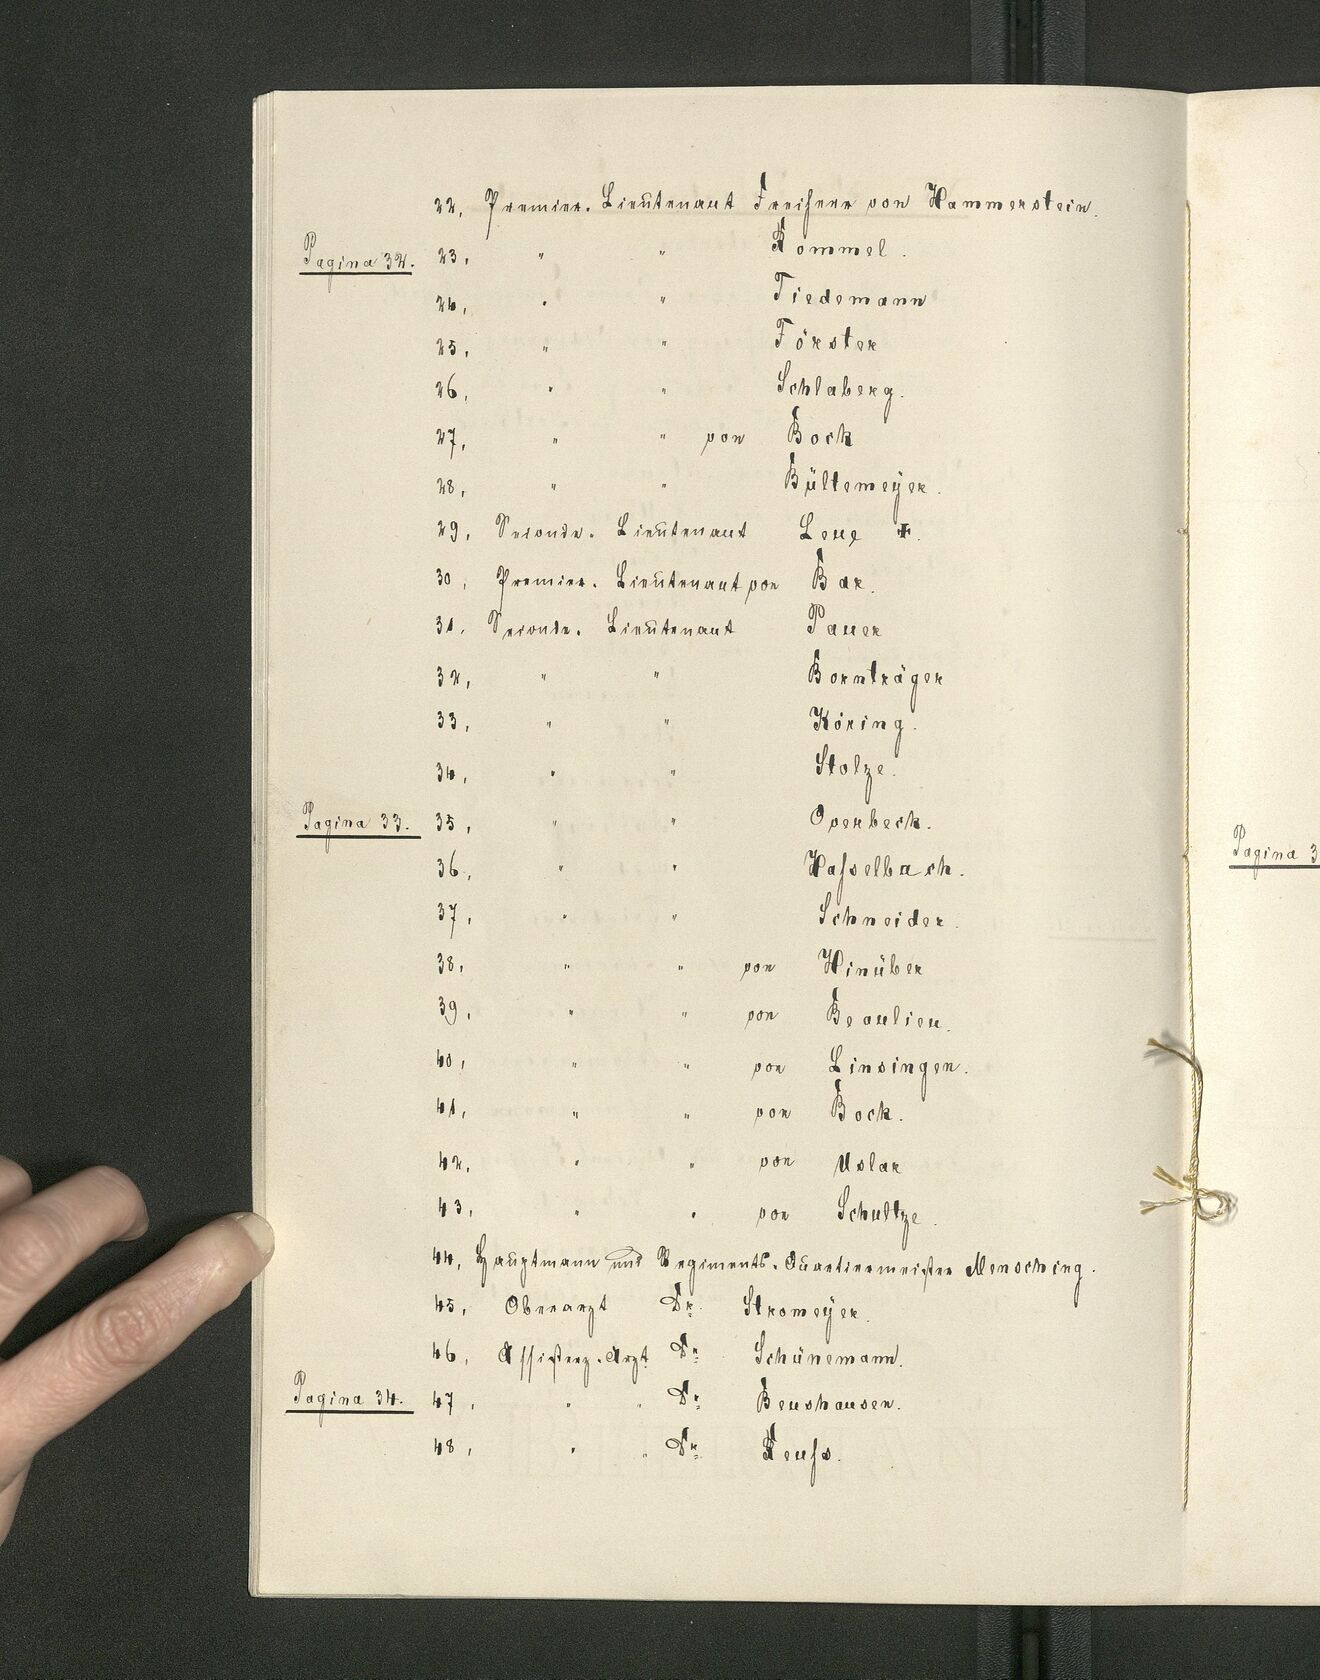 22, Premier-Lieutenant Freiherr von Hammerstein.
Pagina 32. 23, " " Rommel.
24, " " Tiedemann
25, " " Förster
26, " " Schlaberg.
27, " " von Bock
28, " " Bültemeÿer.
29, Seconde-Lieutenant Leue ‡.
30, Premier-Lieutenant von Bar.
31, Seconde-Lieutenant Pauer
32, " " Bornträger
33, " " Köring.
34, " " Stolze.
Pagina 33. 35, " " Overbeck.
36, " " Hasselbach.
37, " " Schneider.
38, " " von Hinüber
39, " " von Beaulieu.
40, " " von Linsingen.
41, " " von Bock.
42, " " von Uslar
43, " " von Schultze.
44, Hauptmann und Regiments-Quartiermeister Mensching.
45, Oberarzt Dr. Stromeÿer.
46, Assistenz-Arzt Dr. Schünemann.
Pagina 34. 47, " " Dr. Beushausen.
48, " " Dr. Reuss.
Pagina 3